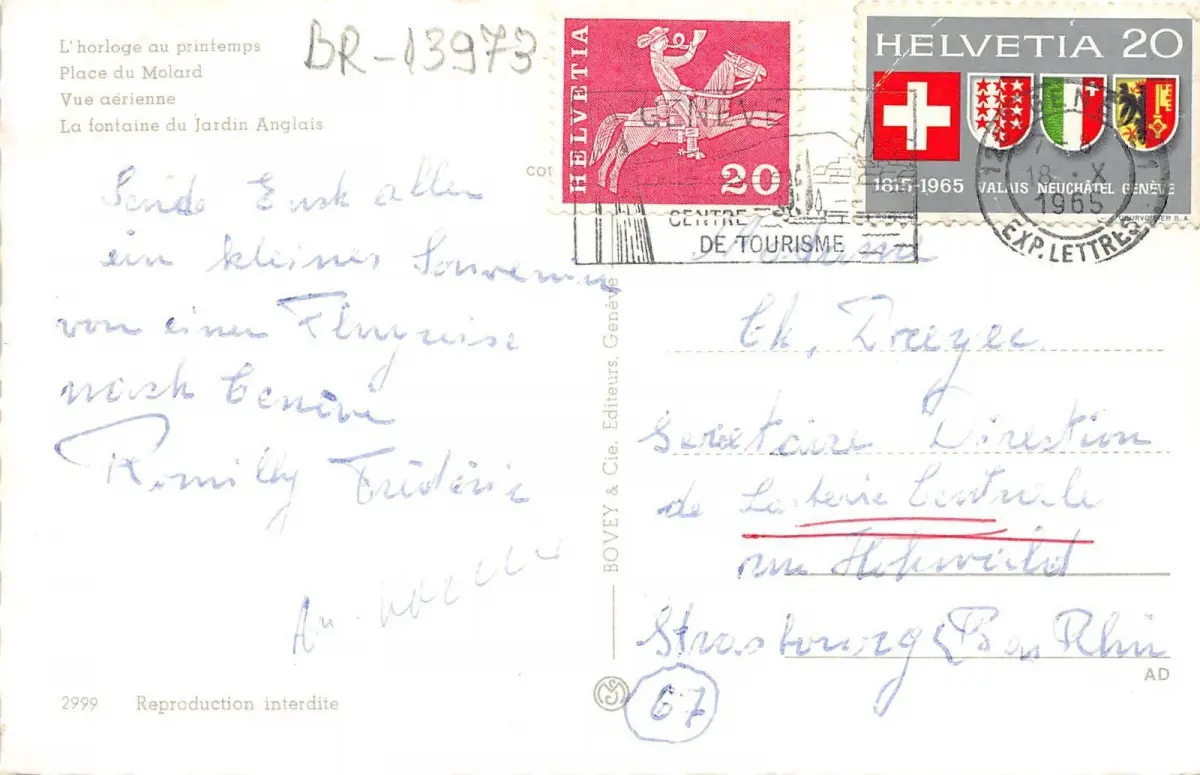 L'horloge au printemps
Place du Molard
Vue aérienne
La fontaine du Jardin Anglais
BR-13973
HELVETIA
20
HELVETIA 20
1815-1965 VALAIS NEUCHÂTEL GENÈVE
COURVOISIER S.A.
GENÈVE
CENTRE
DE TOURISME
18. X
1965
EXP. LETTRES
Sende Euch allen
ein kleines Souvenir
von einer Flugreise
nach Genève
Remilly Frédéric
BOVEY & Cie, Editeurs, Genève
Madame
Ch, Dreyer
Secretaire Direction
de Laiterie Centrale
rue Hohwald
Strasbourg (Bas Rhin
AD
67
2999 Reproduction interdite